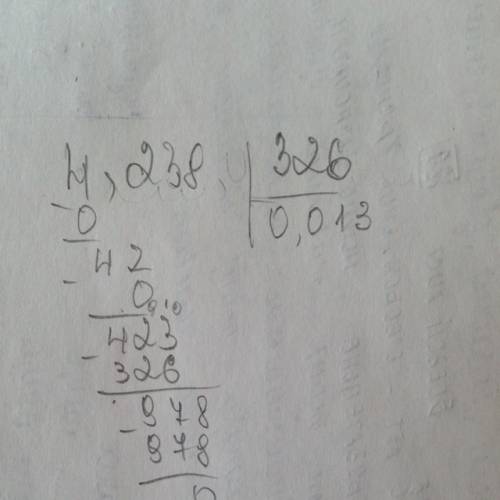 4,238 326
- 0 0,013
42
- 0
423
- 326
978
- 978
0